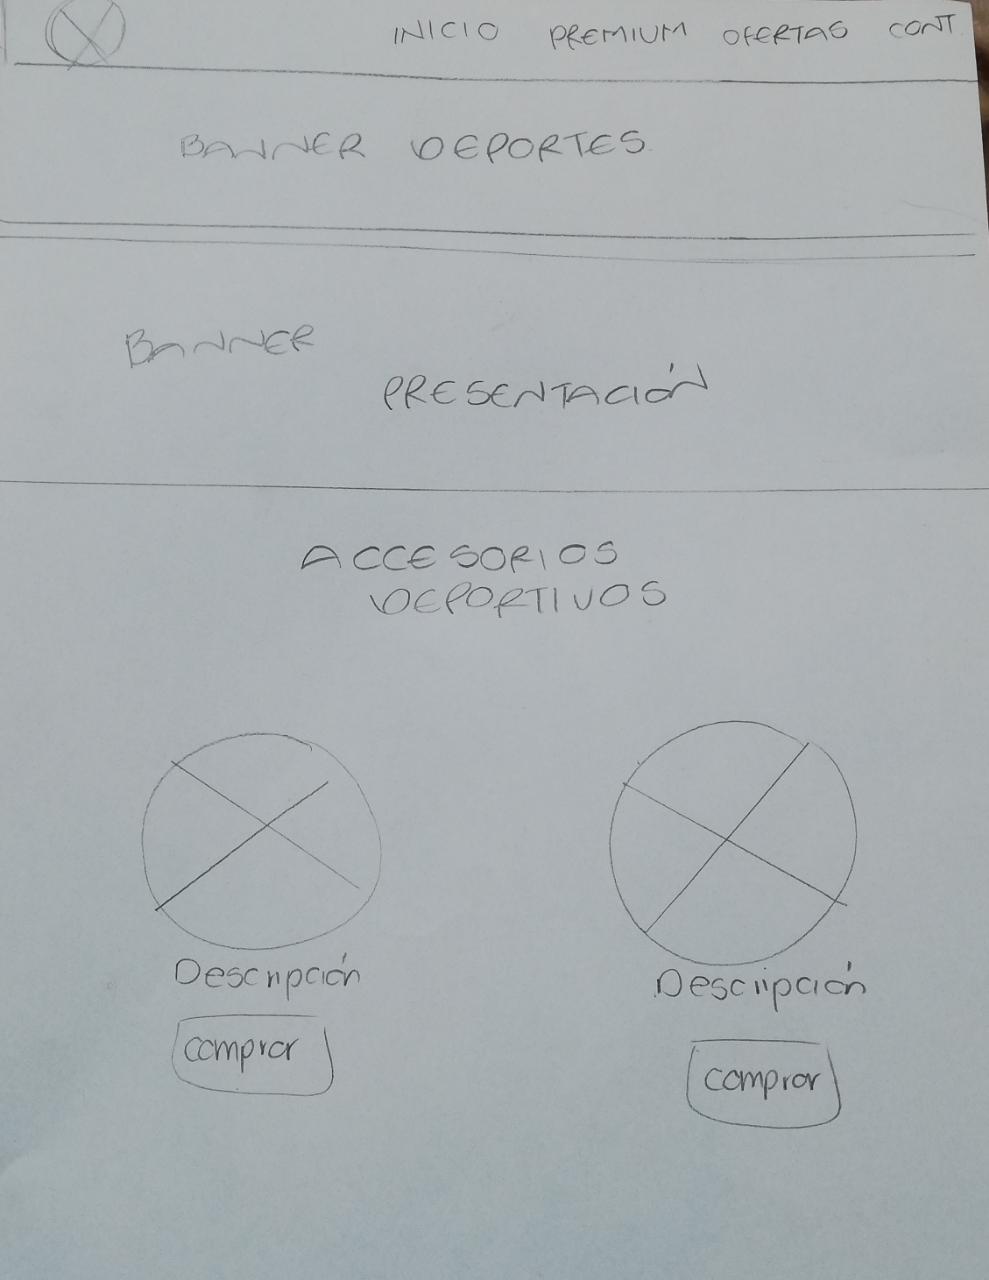 INICIO PREMIUM OFERTAS CONT
BANNER DEPORTES
BANNER
PRESENTACIÓN
ACCESORIOS
DEPORTIVOS
Descripción Descripción
comprar comprar